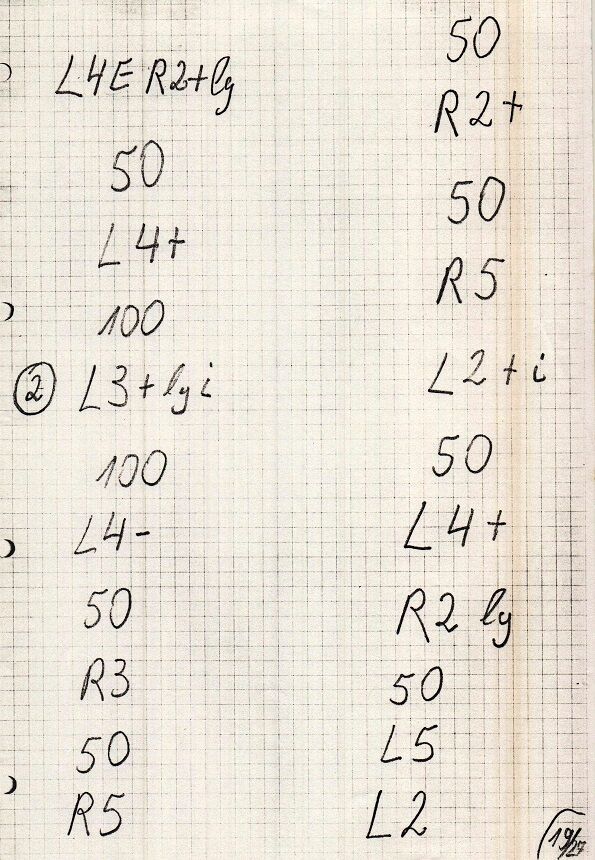 L4E R2+ly
50
L4+
100
② L3+lyi
100
L4-
50
R3
50
R5
50
R2+
50
R5
L2+i
50
L4+
R2 ly
50
L5
L2
19/27